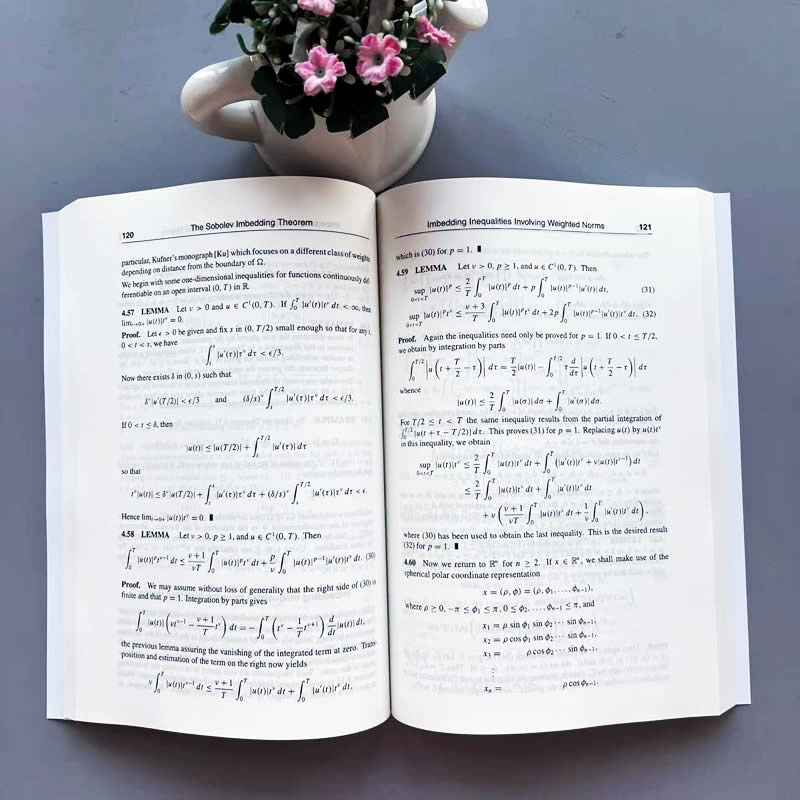 120 The Sobolev Imbedding Theorem
particular, Kufner's monograph [Ku] which focuses on a different class of weights
depending on distance from the boundary of Ω.
We begin with some one-dimensional inequalities for functions continuously dif-
ferentiable on an open interval (0, T) in ℝ.
4.57 LEMMA Let ν > 0 and u ∈ C¹(0, T). If ∫₀ᵀ |u′(t)|t^ν dt < ∞, then
lim_{t→0+} |u(t)|t^ν = 0.
Proof. Let ϵ > 0 be given and fix s in (0, T/2) small enough so that for any t,
0 < t < s, we have
∫_t^s |u′(τ)|τ^ν dτ < ϵ/3.
Now there exists δ in (0, s) such that
δ^ν |u(T/2)| < ϵ/3 and (δ/s)^ν ∫_s^{T/2} |u′(τ)|τ^ν dτ < ϵ/3.
If 0 < t ≤ δ, then
|u(t)| ≤ |u(T/2)| + ∫_t^{T/2} |u′(τ)| dτ
so that
t^ν|u(t)| ≤ δ^ν|u(T/2)| + ∫_t^s |u′(τ)|τ^ν dτ + (δ/s)^ν ∫_s^{T/2} |u′(τ)|τ^ν dτ < ϵ.
Hence lim_{t→0+} |u(t)|t^ν = 0. ∎
4.58 LEMMA Let ν > 0, p ≥ 1, and u ∈ C¹(0, T). Then
∫₀ᵀ |u(t)|^p t^{ν−1} dt ≤ (ν+1)/(νT) ∫₀ᵀ |u(t)|^p t^ν dt + p/ν ∫₀ᵀ |u(t)|^{p−1}|u′(t)|t^ν dt. (30)
Proof. We may assume without loss of generality that the right side of (30) is
finite and that p = 1. Integration by parts gives
∫₀ᵀ |u(t)| (νt^{ν−1} − (ν+1)/T t^ν) dt = −∫₀ᵀ (t^ν − 1/T t^{ν+1}) d/dt |u(t)| dt,
the previous lemma assuring the vanishing of the integrated term at zero. Trans-
position and estimation of the term on the right now yields
ν ∫₀ᵀ |u(t)|t^{ν−1} dt ≤ (ν+1)/T ∫₀ᵀ |u(t)|t^ν dt + ∫₀ᵀ |u′(t)|t^ν dt,
Imbedding Inequalities Involving Weighted Norms 121
which is (30) for p = 1. ∎
4.59 LEMMA Let ν > 0, p ≥ 1, and u ∈ C¹(0, T). Then
sup_{0<t<T} |u(t)|^p ≤ 2/T ∫₀ᵀ |u(t)|^p dt + p ∫₀ᵀ |u(t)|^{p−1}|u′(t)| dt, (31)
sup_{0<t<T} |u(t)|^p t^ν ≤ (ν+3)/T ∫₀ᵀ |u(t)|^p t^ν dt + 2p ∫₀ᵀ |u(t)|^{p−1}|u′(t)|t^ν dt. (32)
Proof. Again the inequalities need only be proved for p = 1. If 0 < t ≤ T/2,
we obtain by integration by parts
∫₀^{T/2} |u(t + T/2 − τ)| dτ = T/2 |u(t)| − ∫₀^{T/2} τ d/dτ |u(t + T/2 − τ)| dτ
whence
|u(t)| ≤ 2/T ∫₀ᵀ |u(σ)| dσ + ∫₀ᵀ |u′(σ)| dσ.
For T/2 ≤ t < T the same inequality results from the partial integration of
∫₀^{T/2} |u(t + τ − T/2)| dτ. This proves (31) for p = 1. Replacing u(t) by u(t)t^ν
in this inequality, we obtain
sup_{0<t<T} |u(t)|t^ν ≤ 2/T ∫₀ᵀ |u(t)|t^ν dt + ∫₀ᵀ (|u′(t)|t^ν + ν|u(t)|t^{ν−1}) dt
≤ 2/T ∫₀ᵀ |u(t)|t^ν dt + ∫₀ᵀ |u′(t)|t^ν dt
+ ν ((ν+1)/(νT) ∫₀ᵀ |u(t)|t^ν dt + 1/ν ∫₀ᵀ |u′(t)|t^ν dt),
where (30) has been used to obtain the last inequality. This is the desired result
(32) for p = 1. ∎
4.60 Now we return to ℝⁿ for n ≥ 2. If x ∈ ℝⁿ, we shall make use of the
spherical polar coordinate representation
x = (ρ, ϕ) = (ρ, ϕ₁, . . . , ϕₙ₋₁),
where ρ ≥ 0, −π ≤ ϕ₁ ≤ π, 0 ≤ ϕ₂, . . . , ϕₙ₋₁ ≤ π, and
x₁ = ρ sin ϕ₁ sin ϕ₂ ··· sin ϕₙ₋₁,
x₂ = ρ cos ϕ₁ sin ϕ₂ ··· sin ϕₙ₋₁,
x₃ = ρ cos ϕ₂ ··· sin ϕₙ₋₁,
⋮
xₙ = ρ cos ϕₙ₋₁.